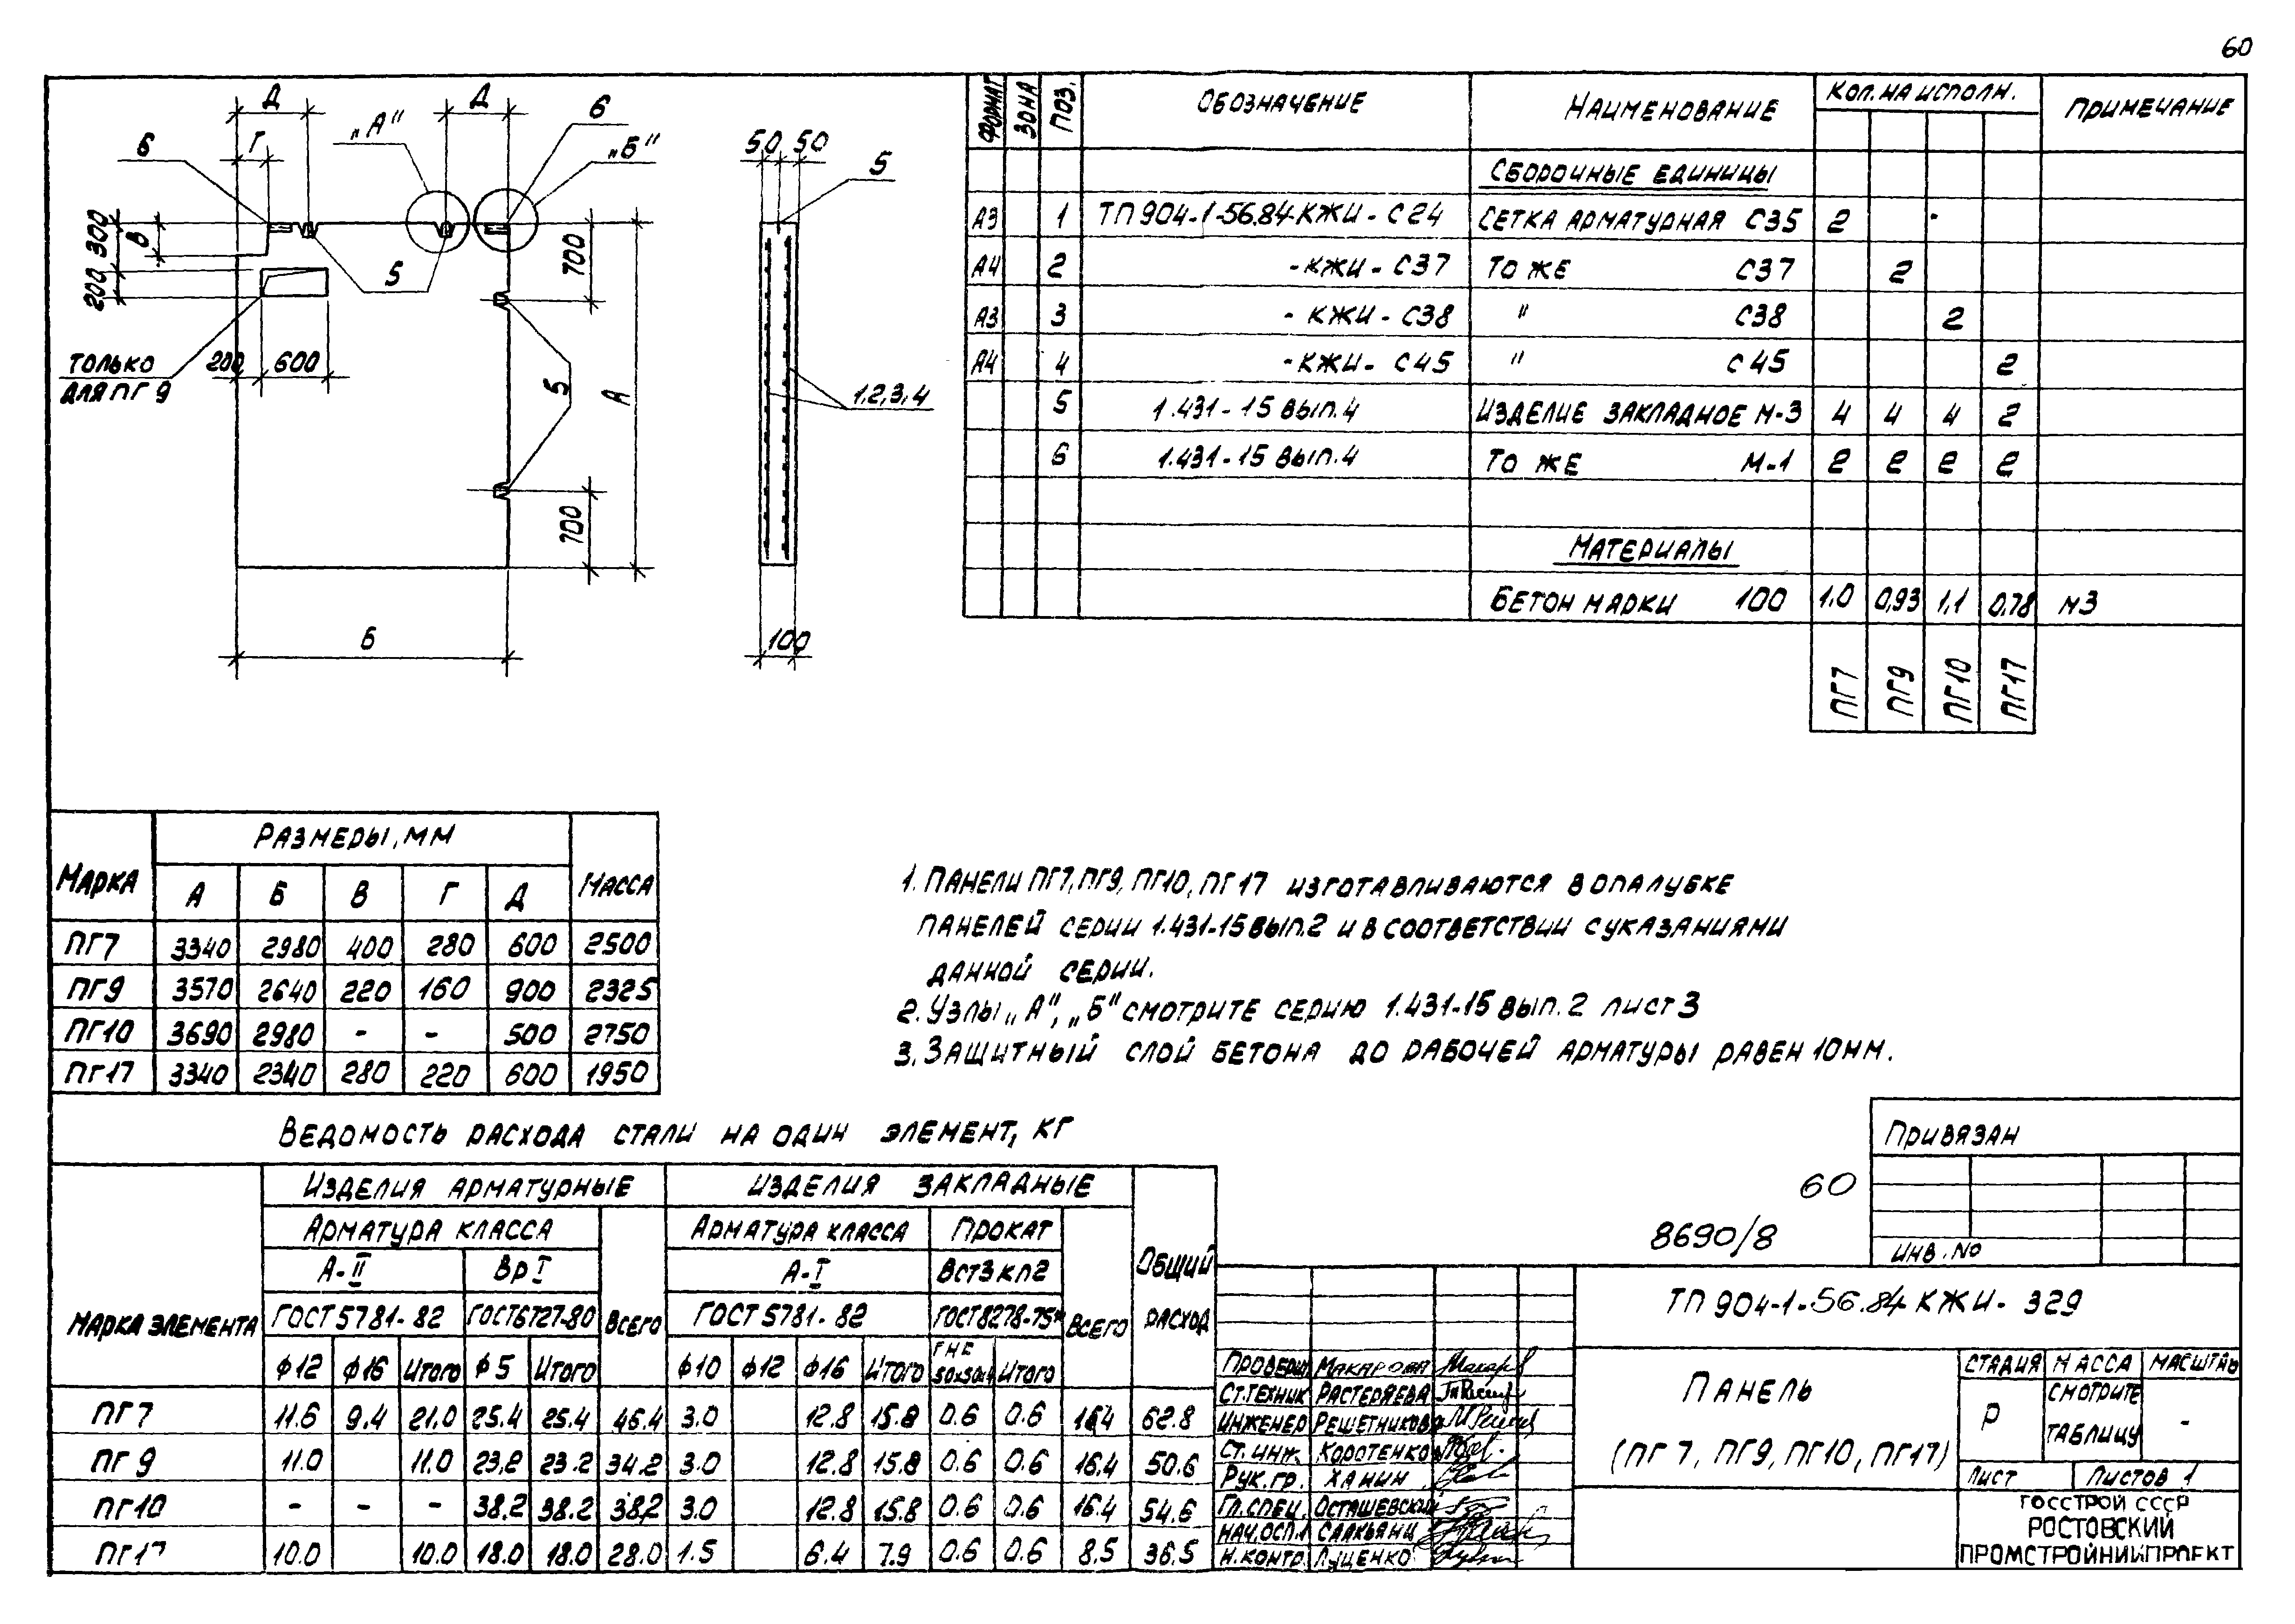 60
Д
Д
„А"
6
„Б"
6
Г
В
300
200
5
700
5
700
А
ТОЛЬКО
ДЛЯ ПГ9
200
600
Б
50 50
5
1,2,3,4
100
ФОРМАТ ЗОНА ПОЗ. ОБОЗНАЧЕНИЕ НАИМЕНОВАНИЕ КОЛ. НА ИСПОЛН. ПРИМЕЧАНИЕ
СБОРОЧНЫЕ ЕДИНИЦЫ
А3 1 ТП 904-1-56.84-КЖИ-С24 СЕТКА АРМАТУРНАЯ С35 2
А4 2 -КЖИ-С37 ТО ЖЕ С37 2
А3 3 -КЖИ-С38 " С38 2
А4 4 -КЖИ-С45 " С45 2
5 1.431-15 ВЫП.4 ИЗДЕЛИЕ ЗАКЛАДНОЕ М-3 4 4 4 2
6 1.431-15 ВЫП.4 ТО ЖЕ М-1 2 2 2 2
МАТЕРИАЛЫ
БЕТОН МАРКИ 100 1.0 0,93 1,1 0,78 М3
ПГ7 ПГ9 ПГ10 ПГ17
МАРКА РАЗМЕРЫ, ММ МАССА
А Б В Г Д
ПГ7 3340 2980 400 280 600 2500
ПГ9 3570 2640 220 160 900 2325
ПГ10 3690 2980 - - 500 2750
ПГ17 3340 2340 280 220 600 1950
1. ПАНЕЛИ ПГ7, ПГ9, ПГ10, ПГ17 ИЗГОТАВЛИВАЮТСЯ В ОПАЛУБКЕ
ПАНЕЛЕЙ СЕРИИ 1.431-15 ВЫП.2 И В СООТВЕТСТВИИ С УКАЗАНИЯМИ
ДАННОЙ СЕРИИ.
2. УЗЛЫ „А", „Б" СМОТРИТЕ СЕРИЮ 1.431-15 ВЫП. 2 ЛИСТ 3
3. ЗАЩИТНЫЙ СЛОЙ БЕТОНА ДО РАБОЧЕЙ АРМАТУРЫ РАВЕН 10ММ.
ВЕДОМОСТЬ РАСХОДА СТАЛИ НА ОДИН ЭЛЕМЕНТ, КГ
МАРКА ЭЛЕМЕНТА ИЗДЕЛИЯ АРМАТУРНЫЕ ИЗДЕЛИЯ ЗАКЛАДНЫЕ ОБЩИЙ РАСХОД
АРМАТУРА КЛАССА ВСЕГО АРМАТУРА КЛАССА ПРОКАТ ВСЕГО
А-II ВрI А-I ВСт3кп2
ГОСТ 5781-82 ГОСТ6727-80 ГОСТ 5781-82 ГОСТ8278-75*
ф12 ф16 ИТОГО ф5 ИТОГО ф10 ф12 ф16 ИТОГО ИТОГО
ПГ7 11.6 9.4 21.0 25.4 25.4 46.4 3.0 12.8 15.8 0.6 0.6 16.4 62.8
ПГ9 11.0 11.0 23.2 23.2 34.2 3.0 12.8 15.8 0.6 0.6 16.4 50.6
ПГ10 - - - 38.2 38.2 38.2 3.0 12.8 15.8 0.6 0.6 16.4 54.6
ПГ17 10.0 10.0 18.0 18.0 28.0 1.5 6.4 7.9 0.6 0.6 8.5 36.5
60
8690/8
ПРИВЯЗАН
ИНВ. №
ТП 904-1-56.84 КЖИ-329
ПРОВЕРИЛ МАКАРОВА
СТ.ТЕХНИК РАСТЕРЯЕВА
ИНЖЕНЕР РЕШЕТНИКОВА
СТ.ИНЖ. КОРОТЕНКО
РУК.ГР. ХАНИН
ГЛ.СПЕЦ. ОСТАШЕВСКИЙ
НАЧ.ОСП.1 СААКЬЯНЦ
Н.КОНТР. ЛУЦЕНКО
ПАНЕЛЬ
(ПГ7, ПГ9, ПГ10, ПГ17)
СТАДИЯ МАССА МАСШТАБ
Р СМОТРИТЕ ТАБЛИЦУ -
ЛИСТ ЛИСТОВ 1
ГОССТРОЙ СССР
РОСТОВСКИЙ
ПРОМСТРОЙНИИПРОЕКТ